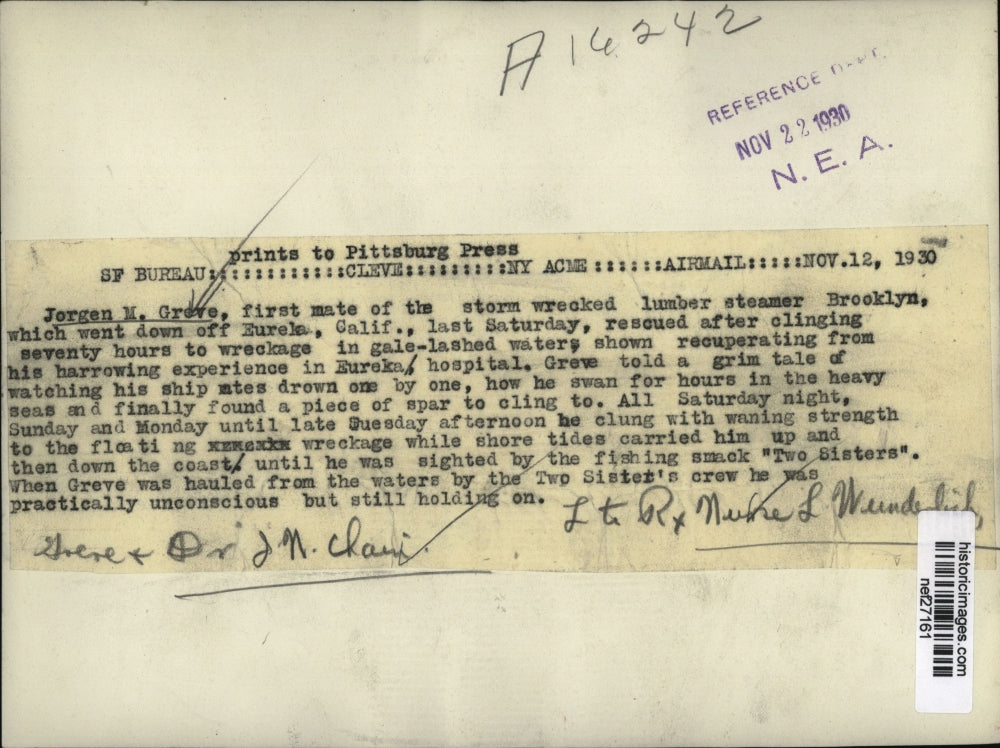 A 14242
REFERENCE DEPT.
NOV 22 1930
N. E. A.
prints to Pittsburg Press
SF BUREAU::::::::::::CLEVE:::::::::NY ACME ::::::AIRMAIL:::::NOV.12, 1930
Jorgen M. Greve, first mate of the storm wrecked lumber steamer Brooklyn,
which went down off Eureka, Calif., last Saturday, rescued after clinging
seventy hours to wreckage in gale-lashed waters shown recuperating from
his harrowing experience in Eureka hospital. Greve told a grim tale of
watching his ship mates drown one by one, how he swan for hours in the heavy
seas and finally found a piece of spar to cling to. All Saturday night,
Sunday and Monday until late Tuesday afternoon he clung with waning strength
to the floati ng wreckage while shore tides carried him up and
then down the coast until he was sighted by the fishing smack "Two Sisters".
When Greve was hauled from the waters by the Two Sister's crew he was
practically unconscious but still holding on.
L to R Nurse L Wunderlich,
Greve + Dr J N. Chain.
historicimages.com
nef27161